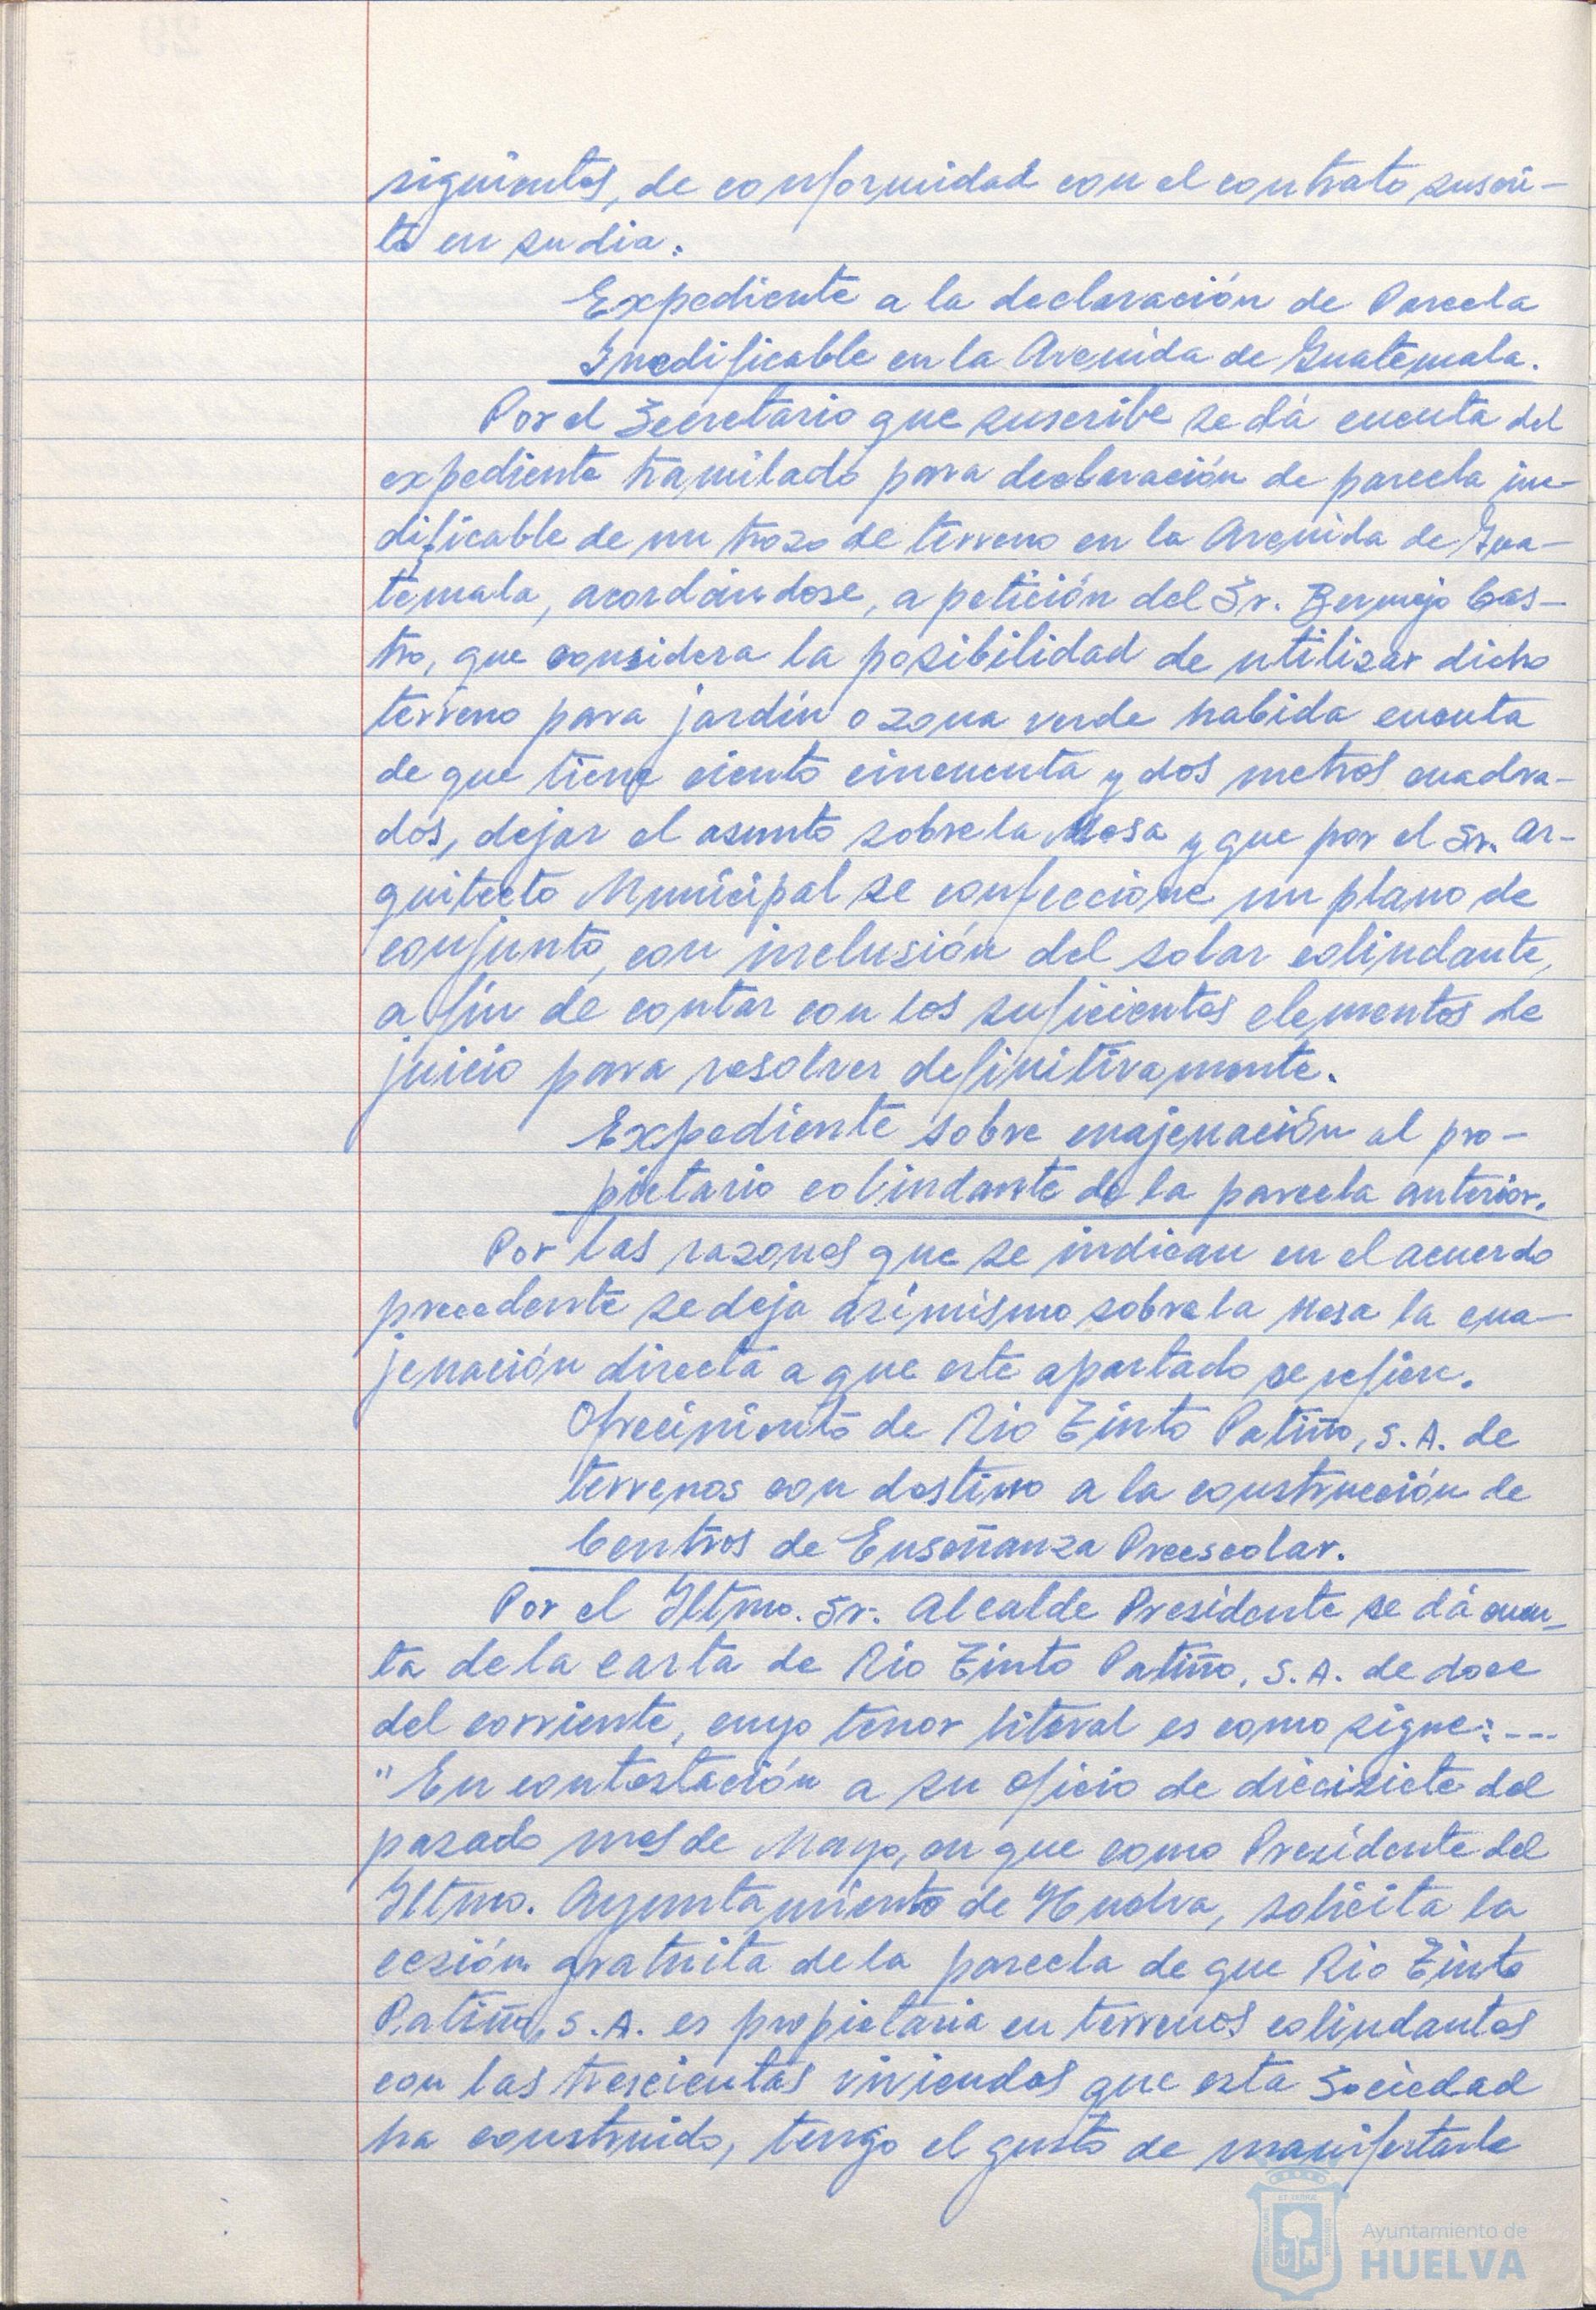 siguientes, de conformidad con el contrato suscri-
to en su dia.
Expediente a la declaración de Parcela
Inedificable en la Avenida de Guatemala.
Por el Secretario que suscribe se dá cuenta del
expediente tramitado para declaración de parcela ine-
dificable de un trozo de terreno en la Avenida de Gua-
temala, acordándose, a petición del Sr. Bermejo Cas-
tro, que considera la posibilidad de utilizar dicho
terreno para jardín o zona verde habida cuenta
de que tiene ciento cincuenta y dos metros cuadra-
dos, dejar el asunto sobre la Mesa y que por el Sr. Ar-
quitecto Municipal se confeccione un plano de
conjunto, con inclusión del solar colindante,
a fín de contar con los suficientes elementos de
juicio para resolver definitivamente.
Expediente sobre enajenación al pro-
pietario colindante de la parcela anterior.
Por las razones que se indican en el acuerdo
precedente se deja asimismo sobre la Mesa la ena-
jenación directa a que este apartado se refiere.
Ofrecimiento de Rio Tinto Patiño, S.A. de
terrenos con destino a la construcción de
Centros de Enseñanza Preescolar.
Por el Iltmo. Sr. Alcalde Presidente se dá cuen-
ta de la carta de Rio Tinto Patiño, S.A. de doce
del corriente, cuyo tenor literal es como sigue:---
"En contestación a su oficio de diecisiete del
pasado mes de Mayo, en que como Presidente del
Iltmo. Ayuntamiento de Huelva, solicita la
cesión gratuita de la parcela de que Rio Tinto
Patiño, S.A. es propietaria en terrenos colindantes
con las trescientas viviendas que esta Sociedad
ha construido, tengo el gusto de manifestarle
Ayuntamiento de
HUELVA